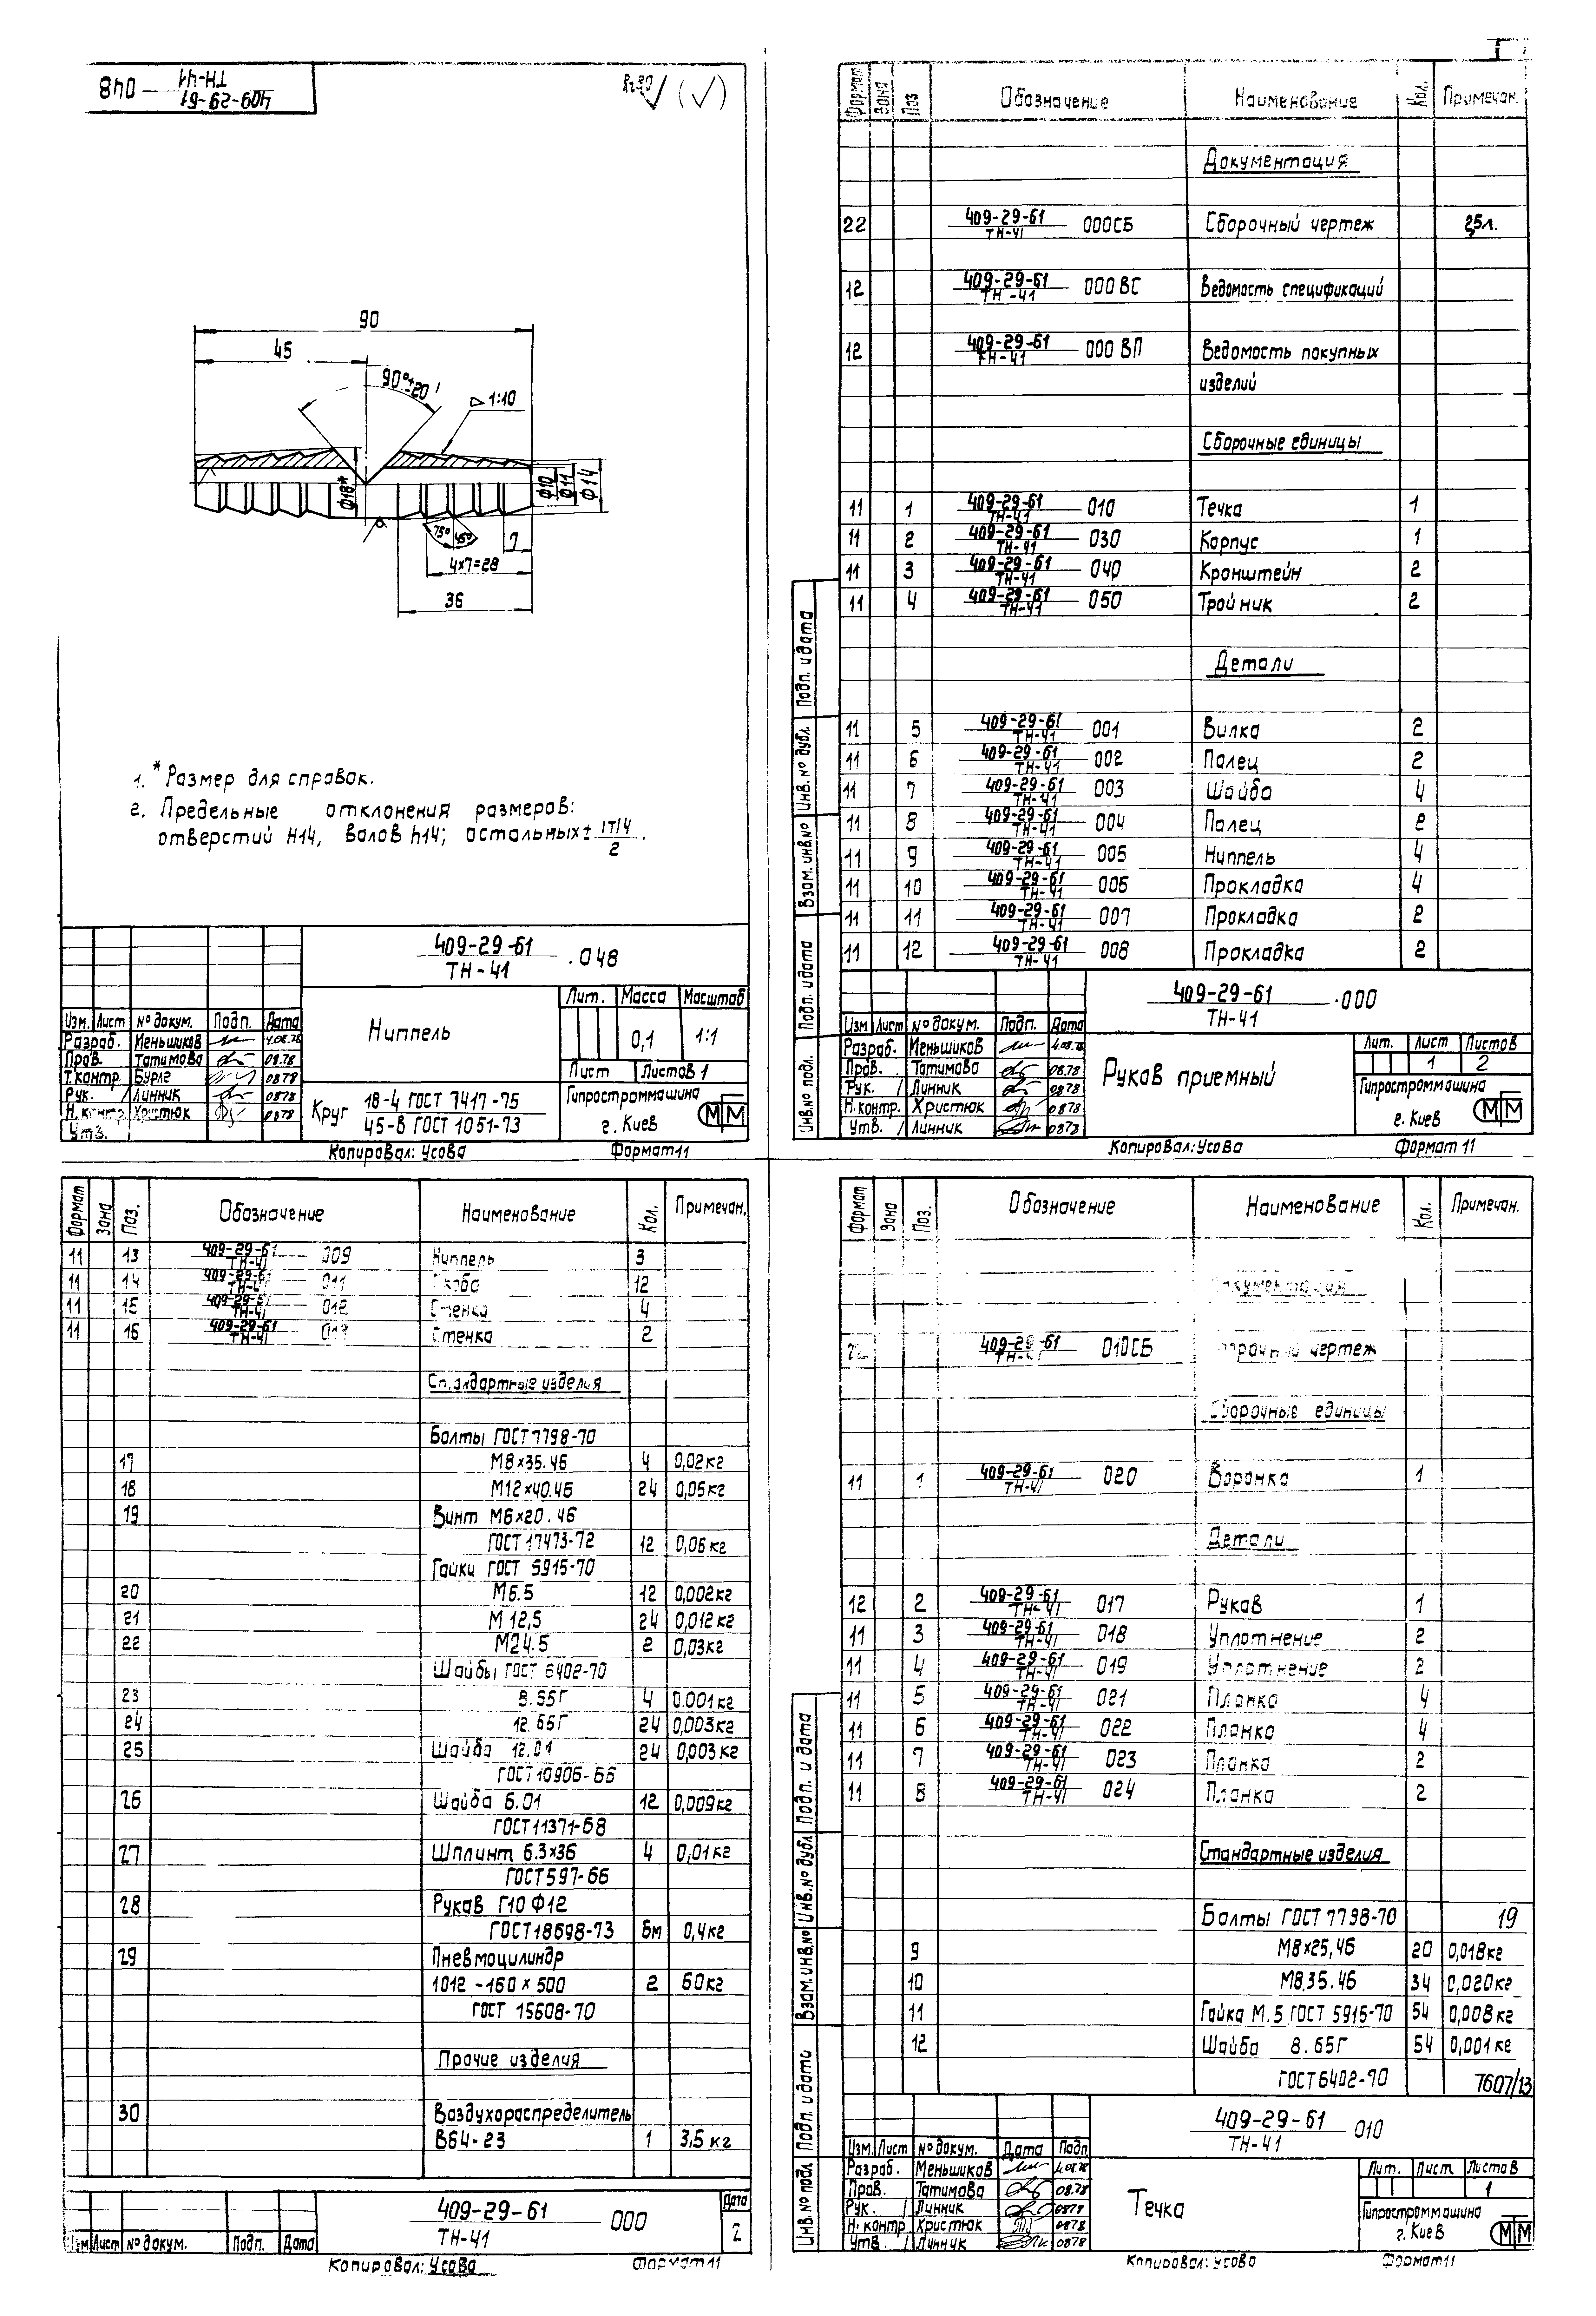 409-29-61
ТН-41 048
Rz80 √ (√)
90
45
90°±20'
▷1:10
Ф18*
Ф10
Ф11
Ф14
75° 45°
7
4×7=28
36
1. * Размер для справок.
2. Предельные отклонения размеров:
отверстий Н14, валов h14; остальных ± IT14/2.
409-29-61
ТН-41 .048
Ниппель
Лит. Масса Масштаб
0,1 1:1
Лист Листов 1
Изм. Лист № докум. Подп. Дата
Разраб. Меньшиков 4.08.78
Пров. Татимова 08.78
Т.контр. Бурле 0878
Рук. Линник 0878
Н.контр. Христюк 0878
Утв.
Круг 18-4 ГОСТ 7417-75
45-В ГОСТ 1051-73
Гипростроммашина
г. Киев
Копировал: Усова Формат 11
Формат Зона Поз Обозначение Наименование Кол. Примечан.
Документация
22 409-29-61/ТН-41 000СБ Сборочный чертеж 2,5л.
12 409-29-61/ТН-41 000 ВС Ведомость спецификаций
12 409-29-61/ТН-41 000 ВП Ведомость покупных
изделий
Сборочные единицы
11 1 409-29-61/ТН-41 010 Течка 1
11 2 409-29-61/ТН-41 030 Корпус 1
11 3 409-29-61/ТН-41 040 Кронштейн 2
11 4 409-29-61/ТН-41 050 Тройник 2
Детали
11 5 409-29-61/ТН-41 001 Вилка 2
11 6 409-29-61/ТН-41 002 Палец 2
11 7 409-29-61/ТН-41 003 Шайба 4
11 8 409-29-61/ТН-41 004 Палец 2
11 9 409-29-61/ТН-41 005 Ниппель 4
11 10 409-29-61/ТН-41 006 Прокладка 4
11 11 409-29-61/ТН-41 007 Прокладка 2
11 12 409-29-61/ТН-41 008 Прокладка 2
Подп. и дата
Инв. № дубл.
Взам. инв.№
Подп. и дата
Инв.№ подл.
409-29-61
ТН-41 .000
Изм Лист № докум. Подп. Дата
Разраб. Меньшиков 4.08.78
Пров. Татимова 08.78
Рук. Линник 0878
Н.контр. Христюк 0878
Утв. Линник 0878
Рукав приемный
Лит. Лист Листов
1 2
Гипростроммашина
г. Киев
Копировал: Усова Формат 11
Формат Зона Поз. Обозначение Наименование Кол. Примечан.
11 13 409-29-61/ТН-41 009 Ниппель 3
11 14 409-29-61/ТН-41 011 Скоба 12
11 15 409-29-61/ТН-41 012 Стенка 4
11 16 409-29-61/ТН-41 013 Стенка 2
Стандартные изделия
Болты ГОСТ 7798-70
17 М8×35.46 4 0,02кг
18 М12×40.46 24 0,05кг
19 Винт М6×20.46
ГОСТ 17473-72 12 0,06кг
Гайки ГОСТ 5915-70
20 М6.5 12 0,002кг
21 М 12,5 24 0,012кг
22 М24.5 2 0,03кг
Шайбы ГОСТ 6402-70
23 8.65Г 4 0.001кг
24 12.65Г 24 0,003кг
25 Шайба 12.01 24 0,003кг
ГОСТ 10906-66
26 Шайба 6.01 12 0,009кг
ГОСТ 11371-68
27 Шплинт 6.3×36 4 0,01кг
ГОСТ 597-66
28 Рукав Г10 Ф12
ГОСТ 18698-73 6м 0,4кг
29 Пневмоцилиндр
1012-160×500 2 60кг
ГОСТ 15608-70
Прочие изделия
30 Воздухораспределитель
В64-23 1 3,5кг
409-29-61
ТН-41 000
Дата
2
Изм Лист № докум. Подп. Дата
Копировал: Усова Формат 11
Формат Зона Поз. Обозначение Наименование Кол. Примечан.
Документация
22 409-29-61/ТН-41 010СБ Сборочный чертеж
Сборочные единицы
11 1 409-29-61/ТН-41 020 Воронка 1
Детали
12 2 409-29-61/ТН-41 017 Рукав 1
11 3 409-29-61/ТН-41 018 Уплотнение 2
11 4 409-29-61/ТН-41 019 Уплотнение 2
11 5 409-29-61/ТН-41 021 Планка 4
11 6 409-29-61/ТН-41 022 Планка 4
11 7 409-29-61/ТН-41 023 Планка 2
11 8 409-29-61/ТН-41 024 Планка 2
Стандартные изделия
Болты ГОСТ 7798-70 19
9 М8×25,46 20 0,018кг
10 М8.35.46 34 0,020кг
11 Гайка М.5 ГОСТ 5915-70 54 0,008кг
12 Шайба 8.65Г 54 0,001кг
ГОСТ 6402-70 7607/13
Подп. и дата
Инв.№ дубл
Взам. инв.№
Подп. и дата
Инв.№ подл
409-29-61
ТН-41 010
Изм. Лист № докум. Дата Подп
Разраб. Меньшиков 4.08.78
Пров. Татимова 08.78
Рук. Линник 0878
Н.контр Христюк 0878
Утв. Линник 0878
Течка
Лит. Лист Листов
1
Гипростроммашина
г. Киев
Копировал: Усова Формат 11